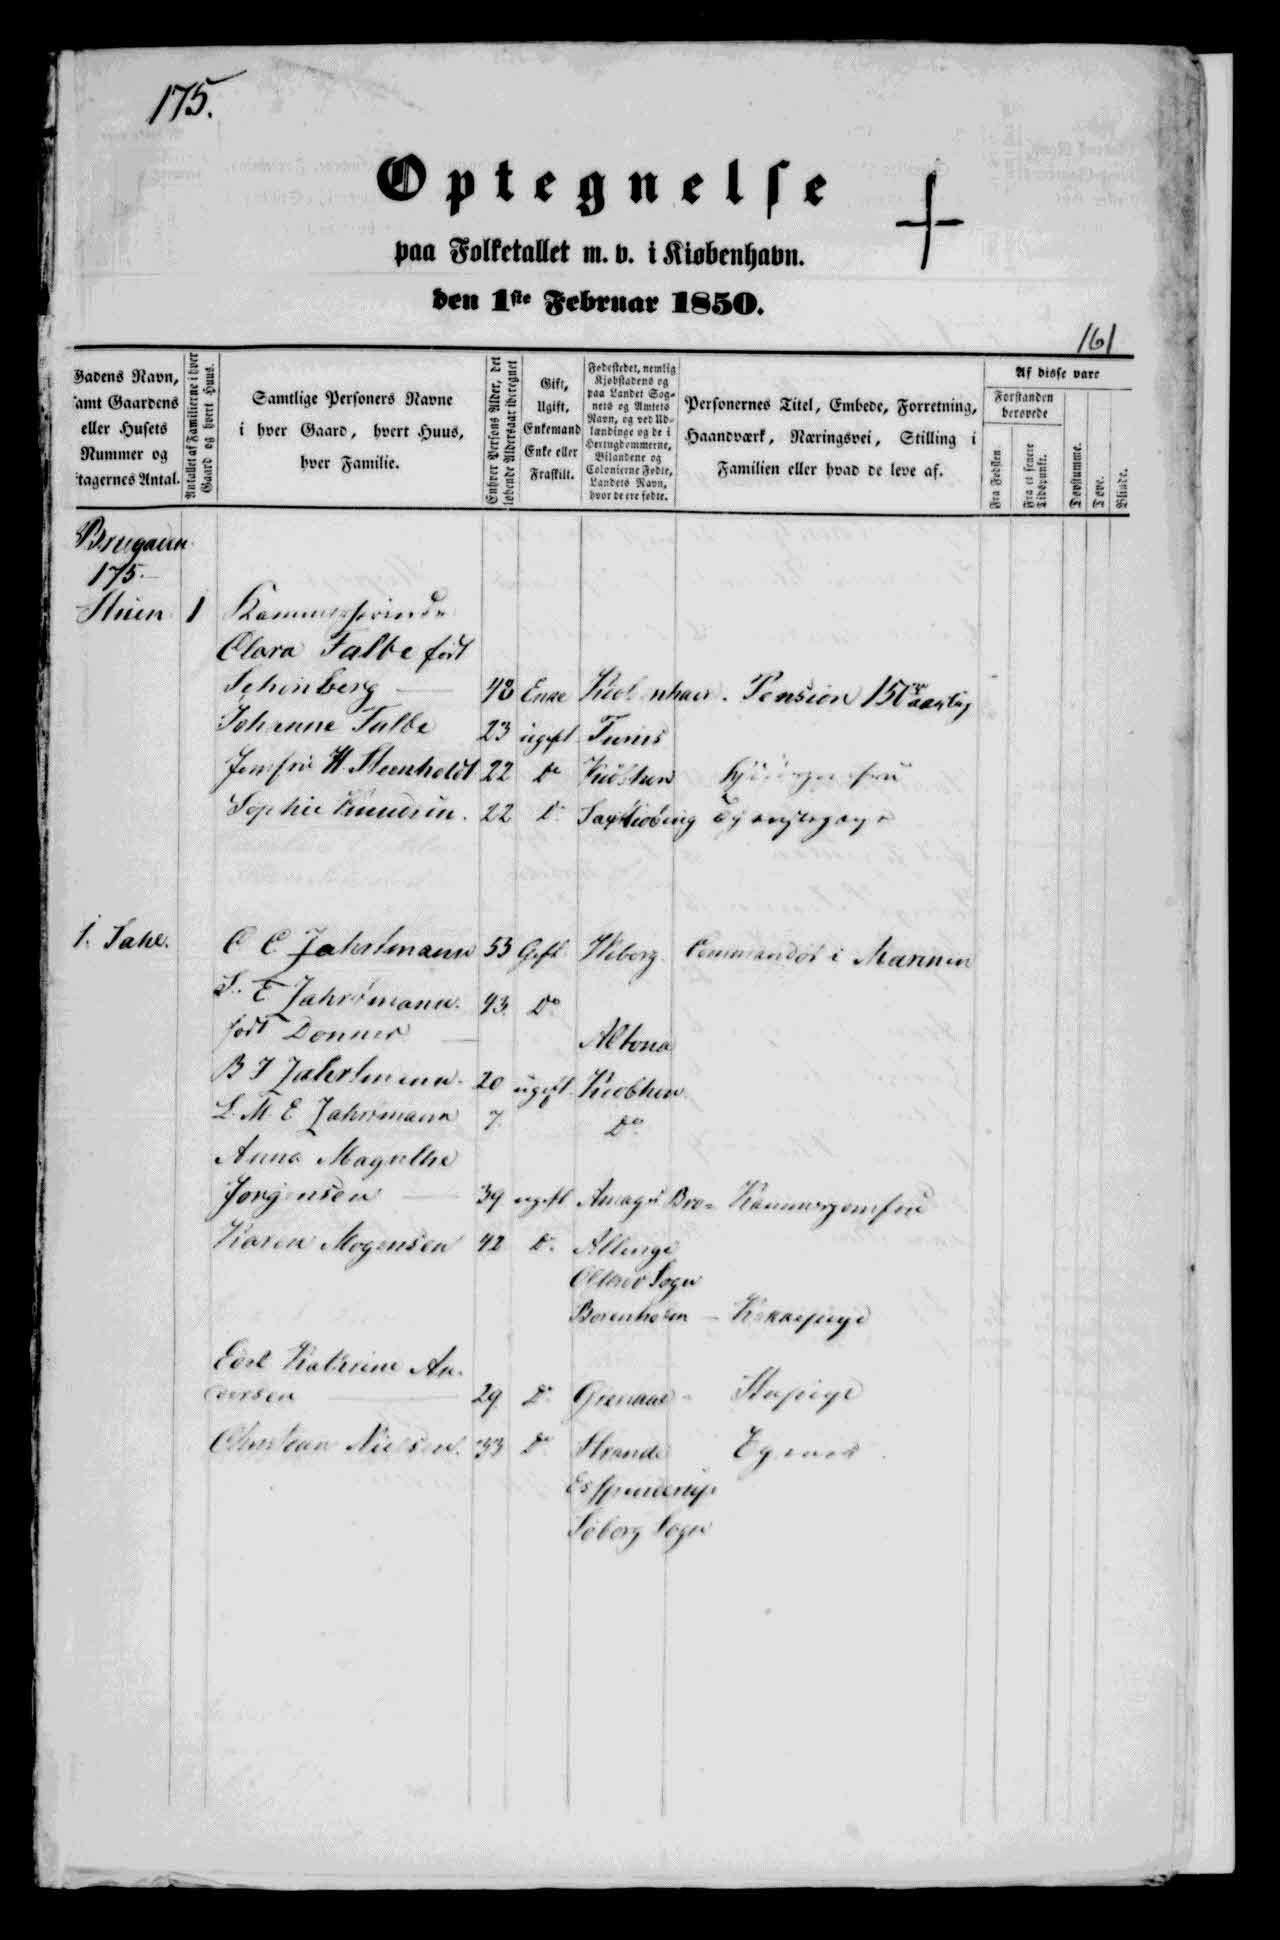 175.
Optegnelse
paa Folketallet m. v. i Kiøbenhavn.
den 1ste Februar 1850.
161
Gadens Navn, samt Gaardens eller Husets Nummer og Etagernes Antal.
Antallet af Familierne i hver Gaard og hvert Huus.
Samtlige Personers Navne i hver Gaard, hvert Huus, hver Familie.
Enhver Persons Alder, det løbende Aldersaar iberegnet
Gift, Ugift, Enkemand Enke eller Fraskilt.
Fødestedet, nemlig Kjøbstadens og paa Landet Sognets og Amtets Navn, og ved Udlændinge og de i Hertugdommerne, Bilandene og Colonierne Fødte, Landets Navn, hvor de ere fødte.
Personernes Titel, Embede, Forretning, Haandværk, Næringsvei, Stilling i Familien eller hvad de leve af.
Af disse vare
Forstanden berøvede
Fra Fødslen
Fra et senere Tidspunkt.
Døvstumme.
Døve.
Blinde.
175.
Stuen 1
Clara Falbe født
Schønberg 42 Enke Pension 150 aarlig
Johanne Falbe 23 ugift Tunis
Jomfru H. Steenholdt 22 Do Kiøbhvn
Sophie Knudsen. 22 Do Saxkiøbing
1. Sahl. C C Jahrtmann 53 Gift Wiborg Commandør i Marinen
E Jahrtmann. 43. Do
født Donner Altona
B J Jahrtmann. 20 ugift Kiøbhvn
L. M. E Jahrtmann 7. Do
Anna Magrethe
Jørgensen 39 ugift Amager Bro Kammerjomfru
Karen Mogensen 42 Do. Allinge
Olsker Sogn
Bornholm Kokkepige
Katrine An-
dersen 29 Do. Grenaae Stuepige
Christian Nielsen. 33 Do Strande
Søborg Sogn